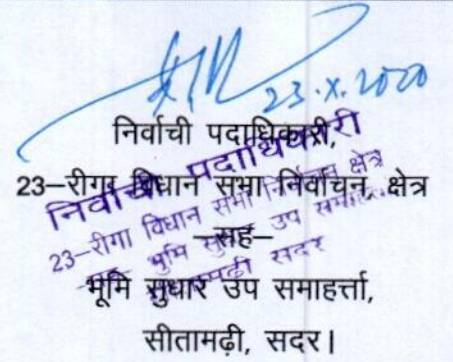 23.X.2020
निर्वाची पदाधिकारी,
23–रीगा विधान सभा निर्वाचन, क्षेत्र
–सह–
भूमि सुधार उप समाहर्त्ता,
सीतामढ़ी, सदर।
निर्वाची पदाधिकारी
23–रीगा विधान सभा निर्वाचन क्षेत्र
सह भूमि सुधार उप समाहर्त्ता
सदर